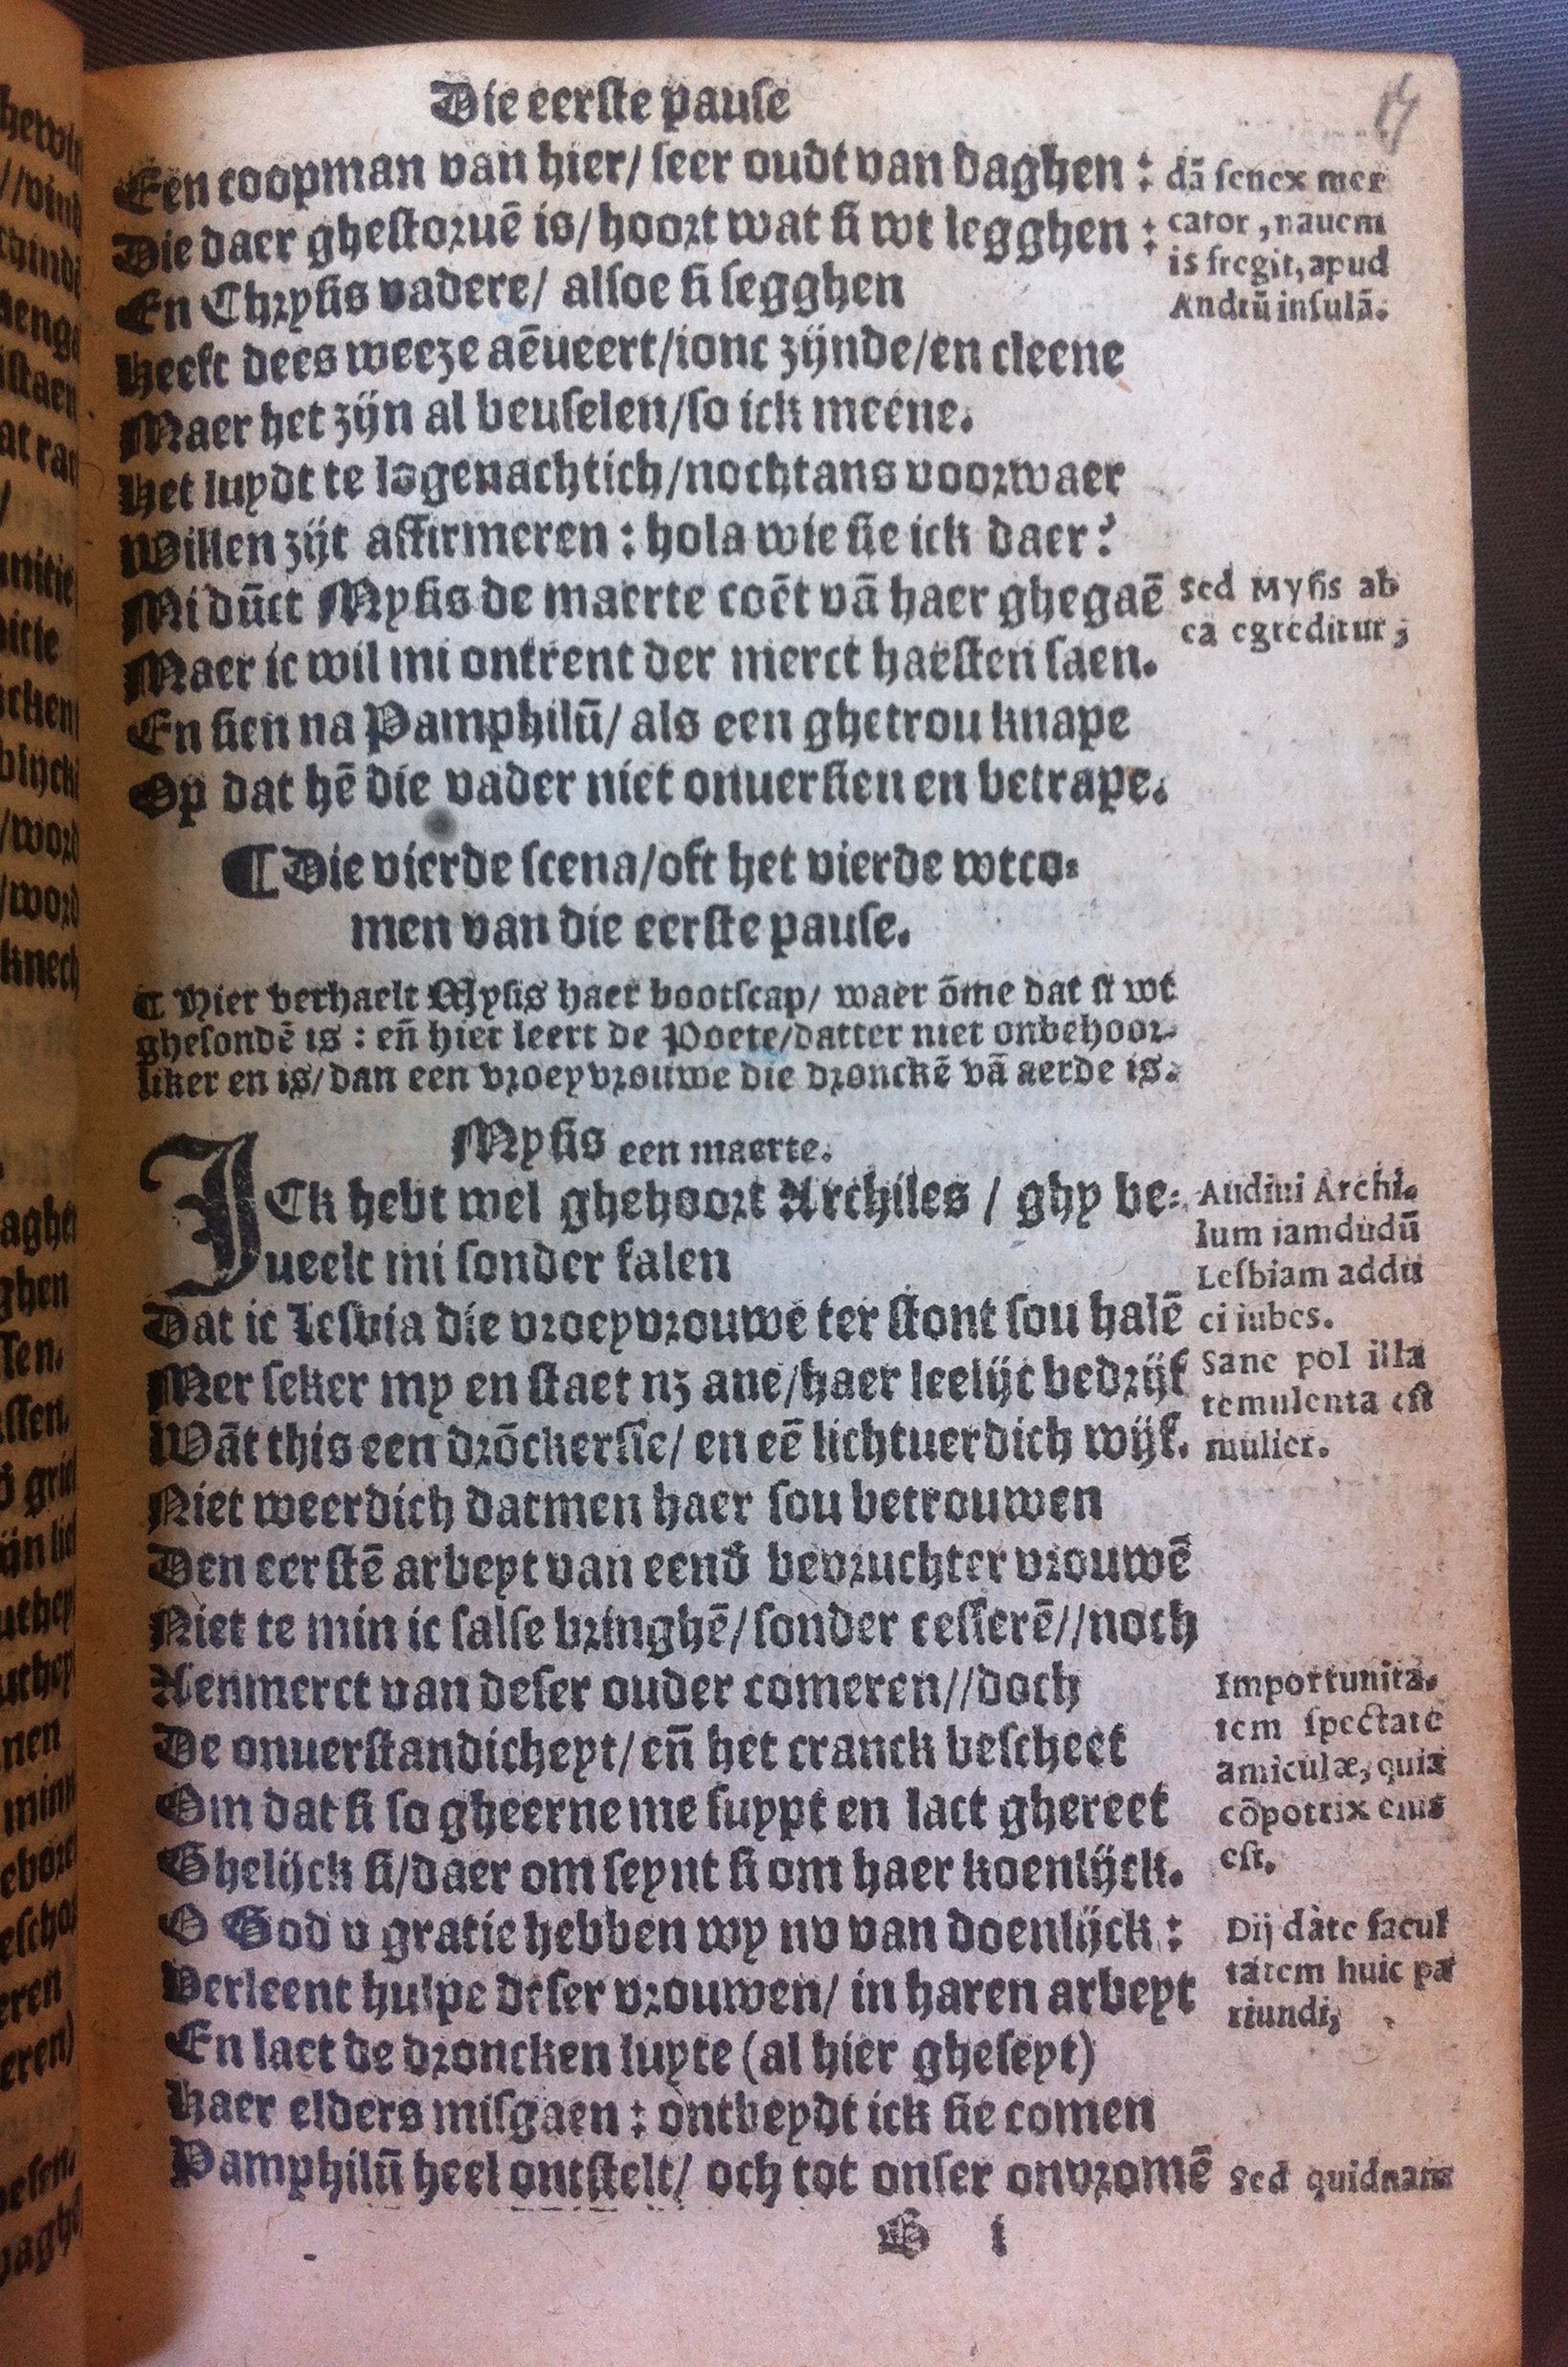 Die eerste pause
Een coopman van hier/ seer oudt van daghen:
Die daer ghestoruē is/ hoort wat si wt legghen:
En Chrysis vadere/ alsoe si segghen
Heeft dees weeze aēueert/ionc zijnde/en cleene
Maer het zijn al beuselen/so ick meene.
Het luydt te lōgenachtich/nochtans voorwaer
Willen zijt affirmeren: hola wie sie ick daer?
Mi dūct Mysis de maerte coēt vā haer ghegaē
Maer ic wil mi ontrent der merct haesten saen.
En sien na Pamphilū/ als een ghetrou knape
Op dat hē die vader niet onuersien en betrape.
dā senex mer
cator, nauem
is fregit, apud
Andrū insulā.
Sed Mysis ab
ea egreditur;
¶ Die vierde scena/oft het vierde wtco-
men van die eerste pause.
¶ Hier verhaelt Mysis haer bootscap/ waer ōme dat si wt
ghesondē is: eñ hier leert de Poete/datter niet onbehoor-
liker en is/ dan een vroeyvrouwe die dronckē vā aerde is.
Mysis een maerte.
ICk hebt wel ghehoort Archiles / ghy be-
ueelt mi sonder falen
Dat ic Lesbia die vroeyvrouwe ter stont sou halē
Mer seker my en staet nz ane/haer leelijc bedrijf
Wāt this een drōckersse/ en eē lichtuerdich wijf.
Niet weerdich datmen haer sou betrouwen
Den eerstē arbeyt van eend̄ bevruchter vrouwē
Niet te min ic salse bringhē/sonder cesserē//noch
Aenmerct van deser ouder comeren//doch
De onuerstandicheyt/ eñ het cranck bescheet
Om dat si so gheerne me suypt en laet ghereet
Ghelijck si/daer om seynt si om haer koenlijck.
O God v gratie hebben wy nv van doenlijck:
Verleent hulpe deser vrouwen/ in haren arbeyt
En laet de droncken luyte (al hier gheseyt)
Haer elders misgaen: ontbeydt ick sie comen
Pamphilū heel ontstelt/ och tot onser onvromē
Audiui Archi-
lum iamdudū
Lesbiam addu
ci iubes.
Sane pol illa
temulenta est
mulier.
Importunita-
tem spectate
amiculæ, quia
cōpotrix eius
est.
Dij date facul
tatem huic pa
riundi;
Sed quidnam
G i